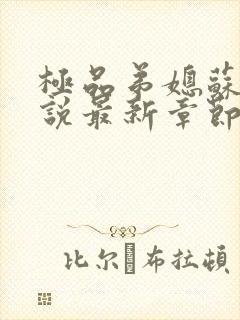 極品弟媳蘇
說最新章節
比尔 布拉頓